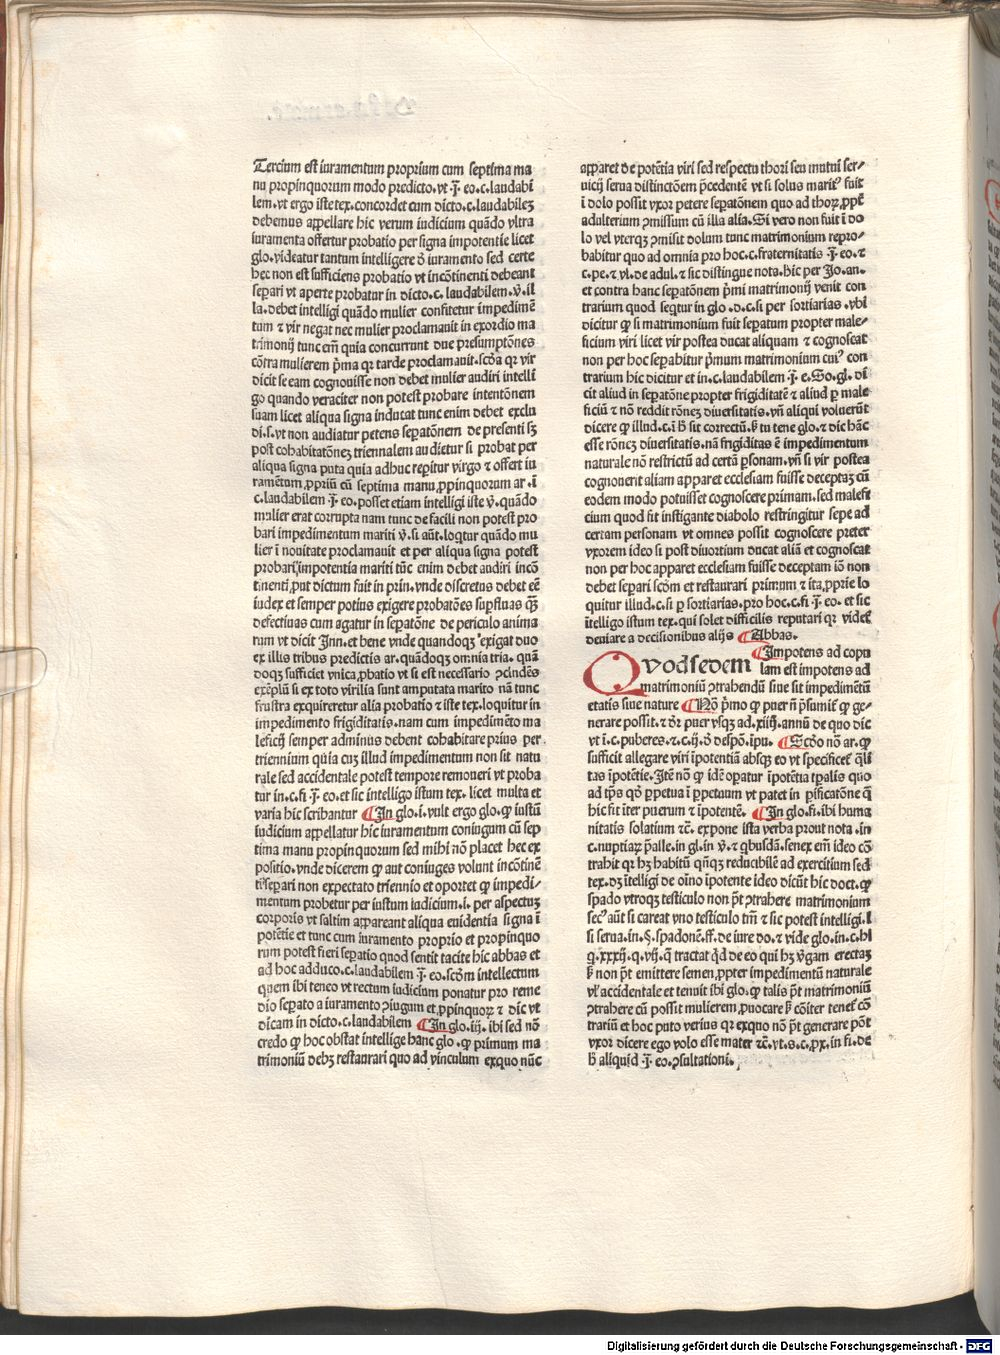 Tercium est iuramentum proprium cum septima ma
nu propinquorum modo predicto. vt ĩ. eo. c. laudabi
lem. vt ergo iste tex. concordet cum dicto. c. laudabileꝫ
debemus appellare hic verum iudicium quãdo vltra
iuramenta offertur probatio per signa impotentie licet
glo. videatur tantum intelligere ð iuramento sed certe
hec non est sufficiens probatio vt incõtinenti debeant
seperi vt aperte probatur in dicto. c. laudabilem. v̄. il
la. debet intelligi quãdo mulier confitetur impedimẽ
tum ⁊ vir negat nec mulier proclamauit in exordio ma
trimonij tunc em̃ quia concurrunt due presumptõnes
cõtra mulierem p̃ma qꝛ tarde proclamauit. scďa qꝛ vir
dicit se eam cognouisse non debet mulier audiri intelli
go quando veraciter non potest probare intentõnem
suam licet aliqua signa inducat tunc enim debet exclu
di. s. vt non audiatur petens sepatõnem de presenti sꝫ
post cohabitatõneꝫ triennalem audietur si probat per
aliqua signa puta quia adhuc repitur virgo ⁊ offert iu
ramẽtum ꝓpriũ cũ septima manu ꝓpinquorum ar. ĩ
c. laudabilem ĩ. eo. posset etiam intelligi iste v̄. quãdo
mulier erat corrupta nam tunc de facili non potest pro
bari impedimentum mariti v̄. si aũt. loqtur quãdo mu
lier ĩ nouitate proclamauit et per aliqua signa potest
probari ĩpotentia mariti tũc enim debet audiri incõ
tinenti ꝓut dictum fuit in prin. vnde discretus debet eẽ
iudex et semper potius exigere probatões supfluas q̃ꝫ
defectiuas cum agatur in sepatõne de periculo anima
rum vt dicit Inn. et bene vnde quandoqꝫ exigat duo
ex illis tribus predictis ar. quãdoqꝫ omnia tria. quã
doqꝫ sufficiet vnica ꝓbatio vt si est necessario ꝯcludẽs
exẽplũ si ex toto virilia sunt amputata marito nã tunc
frustra exquireretur alia probatio ⁊ iste tex. loquitur in
impedimento frigiditatis. nam cum impedimẽto ma
leficij semper adminus debent cohabitare prius per
triennium quia cuꝫ illud impedimentum non sit natu
rale sed accidentale potest tempore remoueri vt proba
tur in. c. fi ĩ. eo. et sic intelligo istum tex. licet multa et
varia hic scribantur ¶ In glo. i. vult ergo glo. ꝙ iustũ
iudicium appellatur hic iuramentum coniugum cũ sep
tima manu propinquorum sed mihi nõ placet hec ex
positio. vnde dicerem ꝙ aut coniuges volunt incõtinẽ
ti separi non expectato triennio et oportet ꝙ impedi⸗
mentum probetur per iustum iudicium. i. per aspectuꝫ
corporis vt saltim appareant aliqua euidentia signa ĩ
potẽtie et tunc cum iuramento proprio et propinquo
rum potest fieri sepatio quod sentit tacite hic abbas et
ad hoc adduco. c. laudabilem ĩ. eo. scďm intellectum
quem ibi teneo vt rectum iudicium ponatur pro reme
dio sepato a iuramento ꝯiugum et ꝓpinquoꝝ ⁊ dic vt
dicam in dicto. c. laudabilem ¶ In glo. iij. ibi sed nõ
credo ꝙ hoc obstat intellige hanc glo. ꝙ primum ma
trimoniũ debꝫ restaurari quo ad vinculum exquo nũc
apparet de potẽtia viri sed respectu thori seu mutui ser⸗
uicij serua distinctõem p̃cedentẽ vt si solus maritꝰ fuit
ĩ dolo possit vxor petere sepatõnem quo ad thoꝝ ꝓpť
adulterium ꝯmissum cũ illa alia. Si vero non fuit ĩ do
lo vel vterqꝫ ꝯmisit dolum tunc matrimonium repro⸗
habitur quo ad omnia pro hoc. c. fraternitatis ĩ. eo. ⁊
c. pe. ⁊ vl. de adul. ⁊ sic distingue nota. hic per Jo. an.
et contra hanc sepatõnem p̃mi matrimonij venit con
trarium quod seqtur in glo. d. c. si per sortiarias. vbi
dicitur ꝙ si matrimonium fuit sepatum propter male⸗
ficium viri licet vir postea ducat aliquam ⁊ cognoscat
non per hoc sepabitur p̃mum matrimonium cuiꝰ con
trarium hic dicitur et in. c. laudabilem ĩ. e. So. gl. di
cit aliud in sepatõne propter frigiditatẽ ⁊ aliud ꝑ male
ficiũ ⁊ nõ reddit rõneꝫ diuersitatis. vñ aliqui voluerũt
dicere ꝙ illud. c. ĩ ħ sit correctũ. sꝫ tu tene glo. ⁊ dic hãc
esse rõneꝫ diuersitatis. nã frigiditas ẽ impedimentum
naturale nõ restrictũ ad certã ꝑsonam. vñ si vir postea
cognouerit aliam apparet ecclesiam fuisse deceptaꝫ cũ
eodem modo potuisset cognoscere primam. sed malefi
cium quod fit instigante diabolo restringitur sepe ad
certam personam vt omnes possit cognoscere preter
vxorem ideo si post diuortium ducat aliã et cognoscat
non per hoc apparet ecclesiam fuisse deceptam iõ non
debet separi scďm et restaurari primum ⁊ ita ꝓprie lo
quitur illud. c. si ꝑ sortiarias. pro hoc. c. fi ĩ. eo. et sic
ĩtelligo istum tex. qui solet difficilis reputari qꝛ videť
deuiare a decisionibus alijs ¶ Abbas.
¶ Impotens ad copu
Quodsedem lam est impotens ad
matrimoniũ ꝯtrahendũ siue sit impedimẽtũ
etatis siue nature ¶ No. p̃mo ꝙ puer ñ p̃sumiť ꝙ ge⸗
nerare possit. ⁊ ðr puer vsqꝫ ad. xiiij. annũ de quo dic
vt ĩ. c. puberes. ⁊. c. ij. ð despõ. ĩpu. ¶ Scďo nõ ar. ꝙ
sufficit allegare viri ĩpotentiã absqꝫ eo vt specificeť q̃li
tas ĩpotẽtie. Itẽ nõ ꝙ idẽ opatur ĩpotẽtia tp̃alis quo
ad tp̃s qð ꝑpetua ĩ ꝑpetuum vt patet in ꝑificatõne q̃
hic fit ĩter puerum ⁊ ĩpotentẽ. ¶ In glo. fi. ibi huma
nitatis solatium ⁊č. expone ista verba prout nota. in
c. nuptiaꝝ p̃alle. in gl. in v̄. ⁊ qbusdã. senex em̃ ideo cõ
trahit qꝛ hꝫ habitũ qñqꝫ reducibilẽ ad exercitium sed
tex. dꝫ ĩtelligi de oĩno ĩpotente ideo dicũt hic doct. ꝙ
spado vtroqꝫ testiculo non p̃t ꝯtrahere matrimonium
secꝰ aũt si careat vno testiculo tm̃ ⁊ sic potest intelligi. l
si serua. in. §. spadonẽ. ff. de iure do. ⁊ vide glo. in. c. hi
q. xxxij. q. vij. q̃ tractat qd de eo qui hꝫ v̓gam erectaꝫ
sꝫ non p̃t emittere semen ꝓpter impedimentũ naturale
vl̓ accidentale et tenuit ibi glo. ꝙ talis p̃t matrimoniũ
ꝯtrahere cũ possit mulierem ꝓuocare sꝫ cõiter teneť cõ
trariũ et hoc puto verius qꝛ exquo nõ p̃t generare põt
vxor dicere ego volo esse mater ⁊č. vt. s. c. ꝓx. in fi. de
ħ aliquid ĩ. eo. ꝯsultationi.
Digitalisierung gefördert durch die Deutsche Forschungsgemeinschaft - DFG